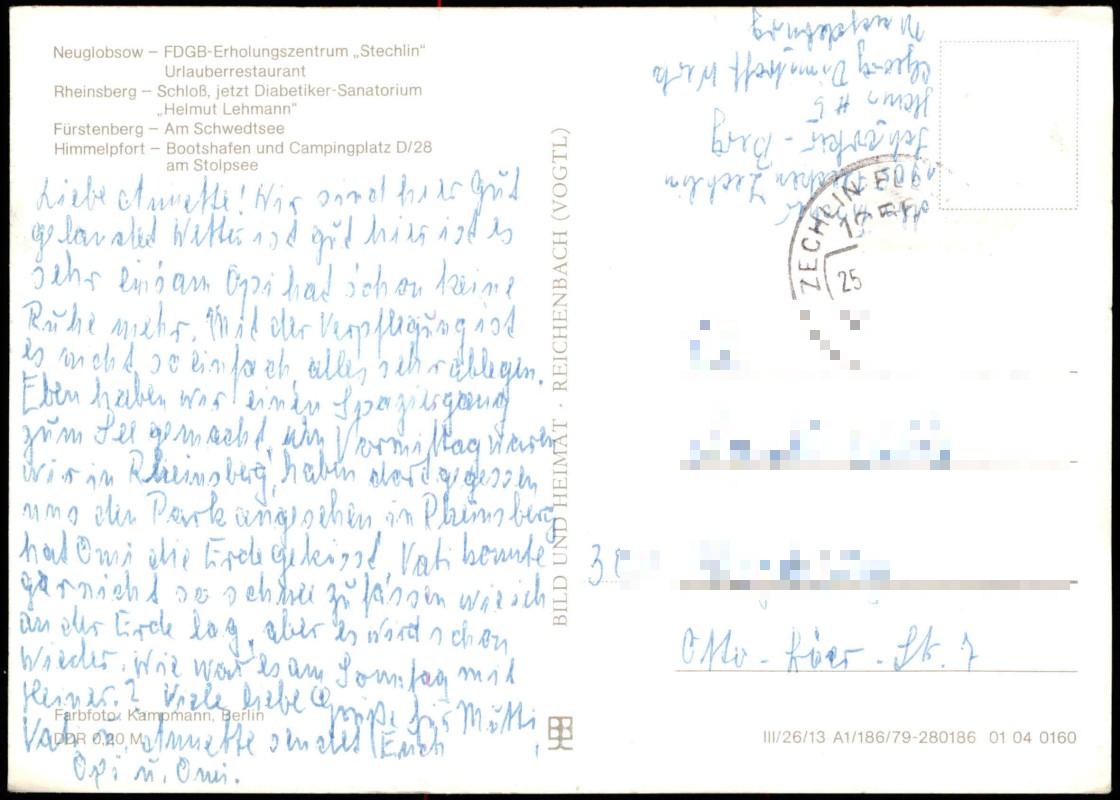 Neuglobsow – FDGB-Erholungszentrum „Stechlin“
Urlauberrestaurant
Rheinsberg – Schloß, jetzt Diabetiker-Sanatorium
„Helmut Lehmann“
Fürstenberg – Am Schwedtsee
Himmelpfort – Bootshafen und Campingplatz D/28
am Stolpsee
Liebe Annette! Wir sind hier gut
gelandet Wetter ist gut hier ist es
sehr einsam Opi hat schon keine
Ruhe mehr. Mit der Verpflegung ist
es nicht so einfach, alles sehr ablegen.
Eben haben wir einen Spaziergang
zum See gemacht, am Vormittag waren
wir in Rheinsberg, haben dort gegessen
uns den Park angesehen in Rheinsberg
hat Omi die Erde geküsst Vati konnte
garnicht so schnell zu fassen wie ich
an der Erde lag, aber es wird schon
wieder. Wie war es am Sonntag mit
Heiner? Viele liebe Grüße für Mutti
Vati u. Annette sendet Euch
Opi u. Omi.
Farbfoto: Kampmann, Berlin
DDR 0,20 M
BILD UND HEIMAT · REICHENBACH (VOGTL)
Flecken Zechlin
- Berg
Haus # 5
Georg Dimitroff Werk
Magdeburg
ZECHLIN
25
Otto - - St. 7
III/26/13 A1/186/79-280186 01 04 0160